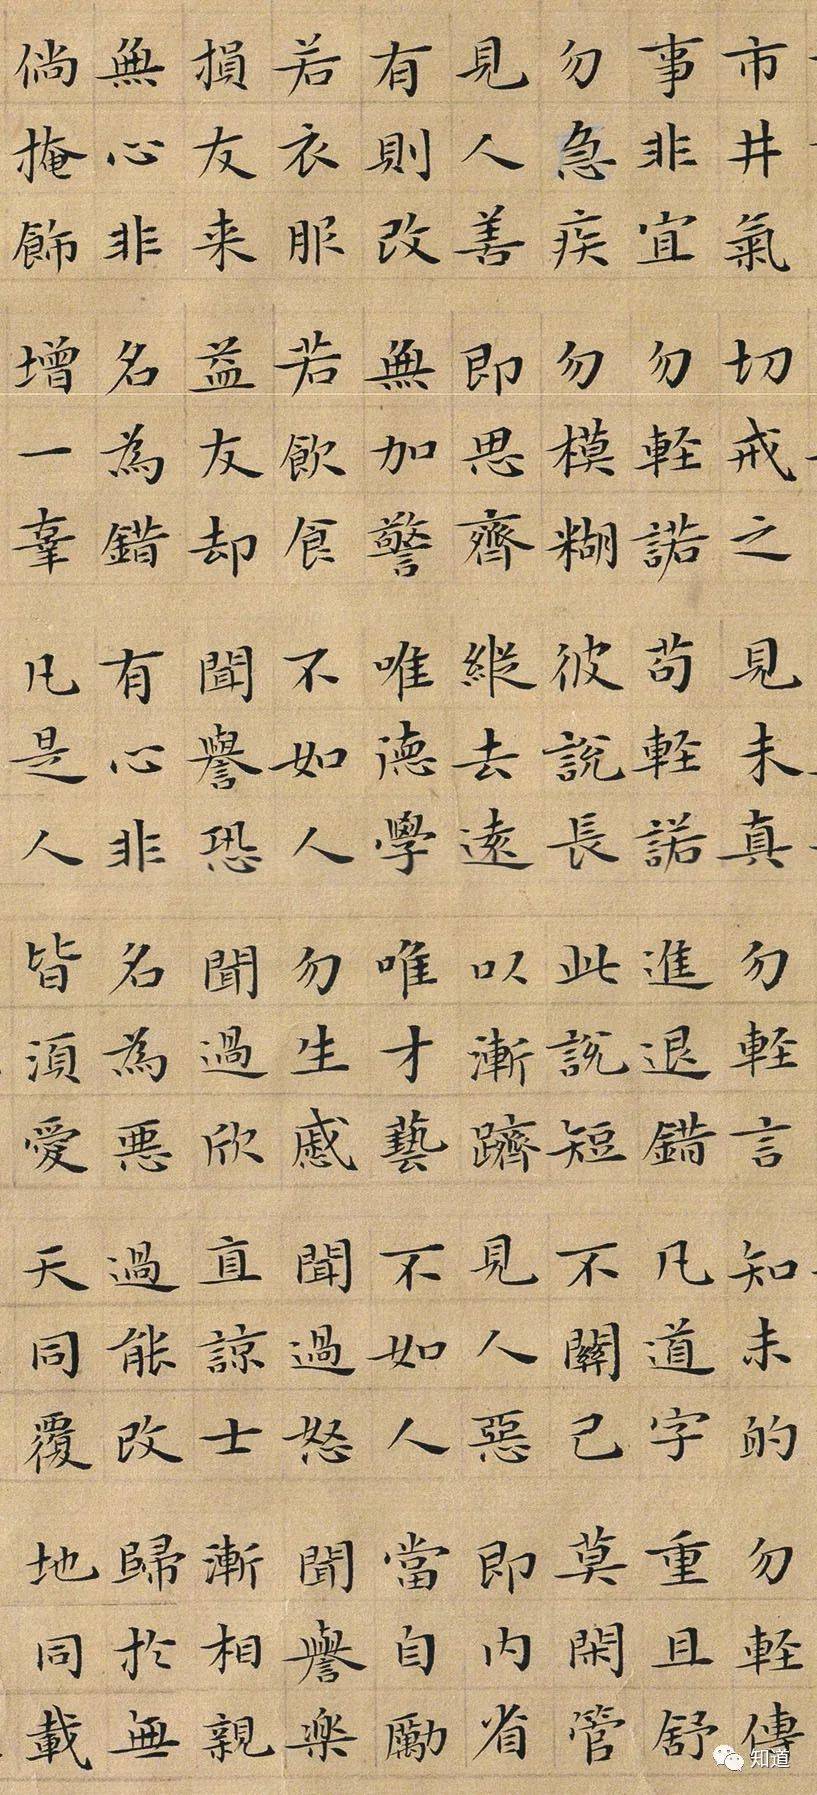 市井氣 切戒之 見未真 勿軽言 知未的 勿軽傳
事非宜 勿軽諾 苟軽諾 進退錯 凡道字 重且舒
勿急疾 勿模糊 彼說長 此說短 不關己 莫閑管
見人善 即思齊 縱去遠 以漸躋 見人惡 即内省
有則改 無加警 唯德學 唯才藝 不如人 當自勵
若衣服 若飲食 不如人 勿生慼 聞過怒 聞譽楽
損友来 益友却 聞譽恐 聞過欣 直諒士 漸相親
無心非 名為錯 有心非 名為悪 過能改 歸於無
倘掩飾 增一辜 凡是人 皆須愛 天同覆 地同載
知道